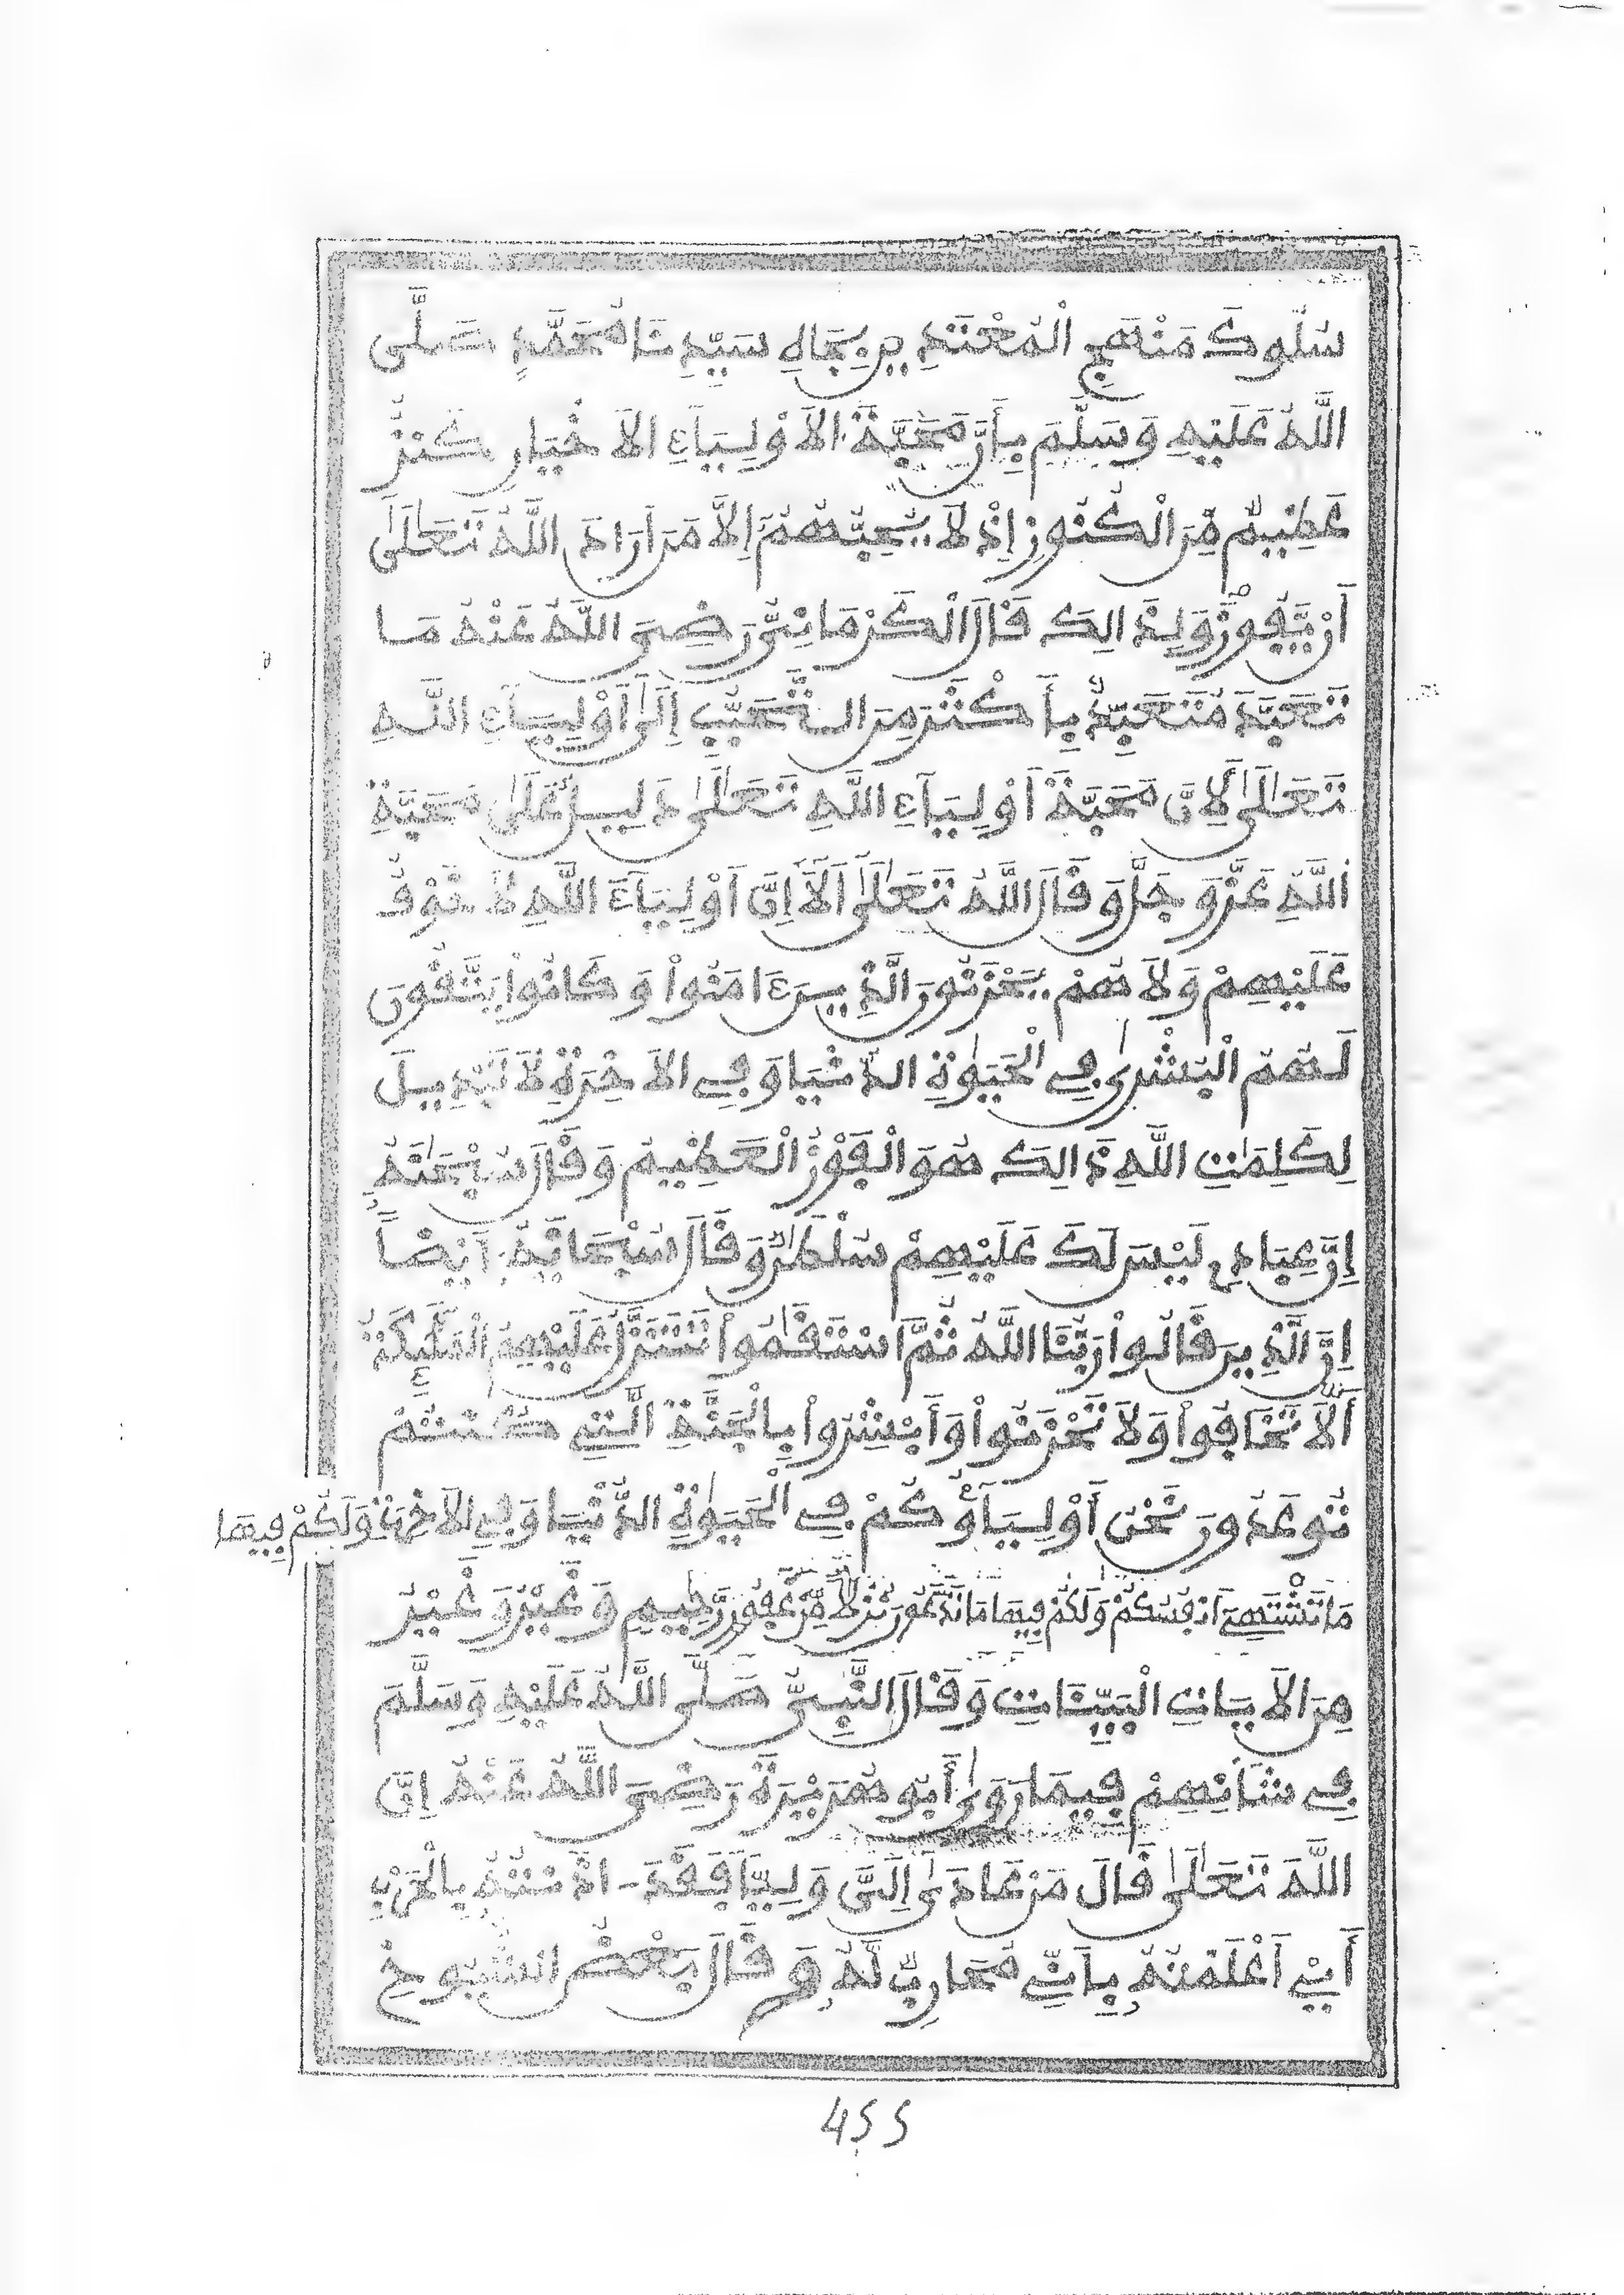 سُلُوكَ مَنْهَجِ الْمُهْتَدِينَ بِجَاهِ سَيِّدِنَا مُحَمَّدٍ صَلَّى
اللَّهُ عَلَيْهِ وَسَلَّمَ بِأَنَّ مَحَبَّةَ الاَوْلِيَآءِ الاَخْيَارِ كَنْزٌ
عَظِيمٌ مِّنَ الْكُنُوزِ إِذْ لَا يُحِبُّهُمْ إِلَّا مَنَ اَرَادَ اللَّهُ تَعَالَىٰ
أَنْ يَّفُوزَ وَلِذَالِكَ قَالَ الْكَرْمَانِيُّ رَضِيَ اللَّهُ عَنْهُ مَا
تَعَبَّدَ مُتَعَبِّدٌ بِأَكْثَرَ مِنَ التَّحَبُّبِ إِلَىٰ أَوْلِيَآءِ اللَّهِ
تَعَالَىٰ لِأَنَّ مَحَبَّةَ أَوْلِيَآءِ اللَّهِ تَعَالَىٰ دَلِيلٌ عَلَىٰ مَحَبَّةِ
اللَّهِ عَزَّ وَجَلَّ وَقَالَ اللَّهُ تَعَالَىٰ أَلَآ إِنَّ أَوْلِيَآءَ اللَّهِ لَا خَوْفٌ
عَلَيْهِمْ وَلَا هُمْ يَحْزَنُونَ الَّذِينَ ءَامَنُواْ وَكَانُواْ يَتَّقُونَ
لَهُمُ الْبُشْرَىٰ فِي الْحَيَوٰةِ الدُّنْيَا وَفِي الاَخِرَةِ لَا تَبْدِيلَ
لِكَلِمَٰتِ اللَّهِ ذَالِكَ هُوَ الْفَوْزُ الْعَظِيمُ وَقَالَ سُبْحَٰنَهُ
إِنَّ عِبَادِي لَيْسَ لَكَ عَلَيْهِمْ سُلْطَٰنٌ وَقَالَ سُبْحَانَهُ أَيْضاً
إِنَّ الَّذِينَ قَالُواْ رَبُّنَا اللَّهُ ثُمَّ اَسْتَقَٰمُواْ تَتَنَزَّلُ عَلَيْهِمُ الْمَلَٰٓئِكَةُ
أَلَّا تَخَافُواْ وَلَا تَحْزَنُواْ وَأَبْشِرُواْ بِالْجَنَّةِ الَّتِي كُنْتُمْ
تُوعَدُونَ نَحْنُ أَوْلِيَآؤُكُمْ فِي الْحَيَوٰةِ الدُّنْيَا وَفِي الاَخِرَةِ وَلَكُمْ فِيهَا
مَا تَشْتَهِي أَنفُسُكُمْ وَلَكُمْ فِيهَا مَا تَدَّعُونَ نُزُلًا مِّنْ غَفُورٍ رَّحِيمٍ وَغَيْرُ وَغَيْرُ
مِنَ الاَيَاتِ الْبَيِّنَاتِ وَقَالَ النَّبِيُّ صَلَّى اللَّهُ عَلَيْهِ وَسَلَّمَ
فِي شَأْنِهِمْ فِيمَا رَوَىٰ أَبُو هُرَيْرَةَ رَضِيَ اللَّهُ عَنْهُ إِنَّ
اللَّهَ تَعَالَىٰ قَالَ مَنْ عَادَىٰ إِلَيَّ وَلِيّاً فَقَدَ اذَنْتُهُ بِالْحَرْبِ
أَيْ أَعْلَمْتُهُ بِأَنِّي مُحَارِبٌ لَّهُ وَقَالَ بَعْضُ الشُّيُوخِ
455